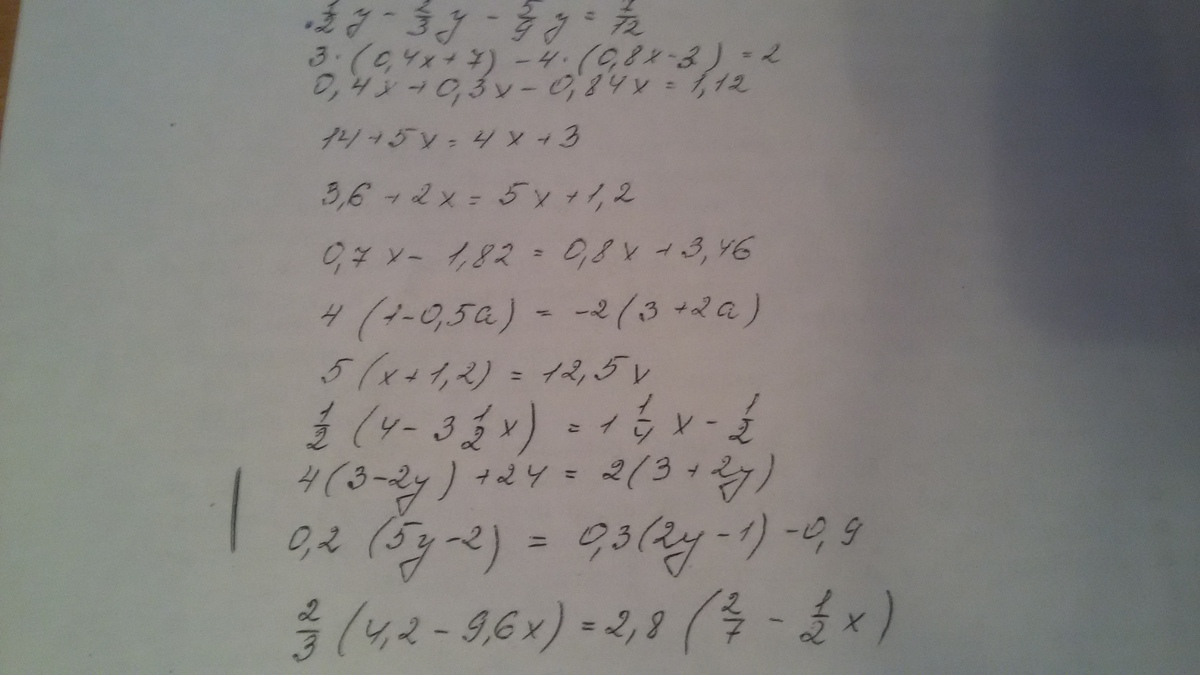 1/2 y - 2/3 y - 5/9 y = 7/12
3·(0,4x+7) - 4·(0,8x-3) = 2
0,4x + 0,3x - 0,84x = 1,12
14 + 5x = 4x + 3
3,6 + 2x = 5x + 1,2
0,7x - 1,82 = 0,8x + 3,46
4 (1-0,5a) = -2(3+2a)
5(x+1,2) = 12,5x
1/2 (4 - 3 1/2 x) = 1 1/4 x - 1/2
4(3-2y) + 24 = 2(3+2y)
0,2 (5y-2) = 0,3(2y-1) - 0,9
2/3 (4,2 - 9,6x) = 2,8 (2/7 - 1/2 x)